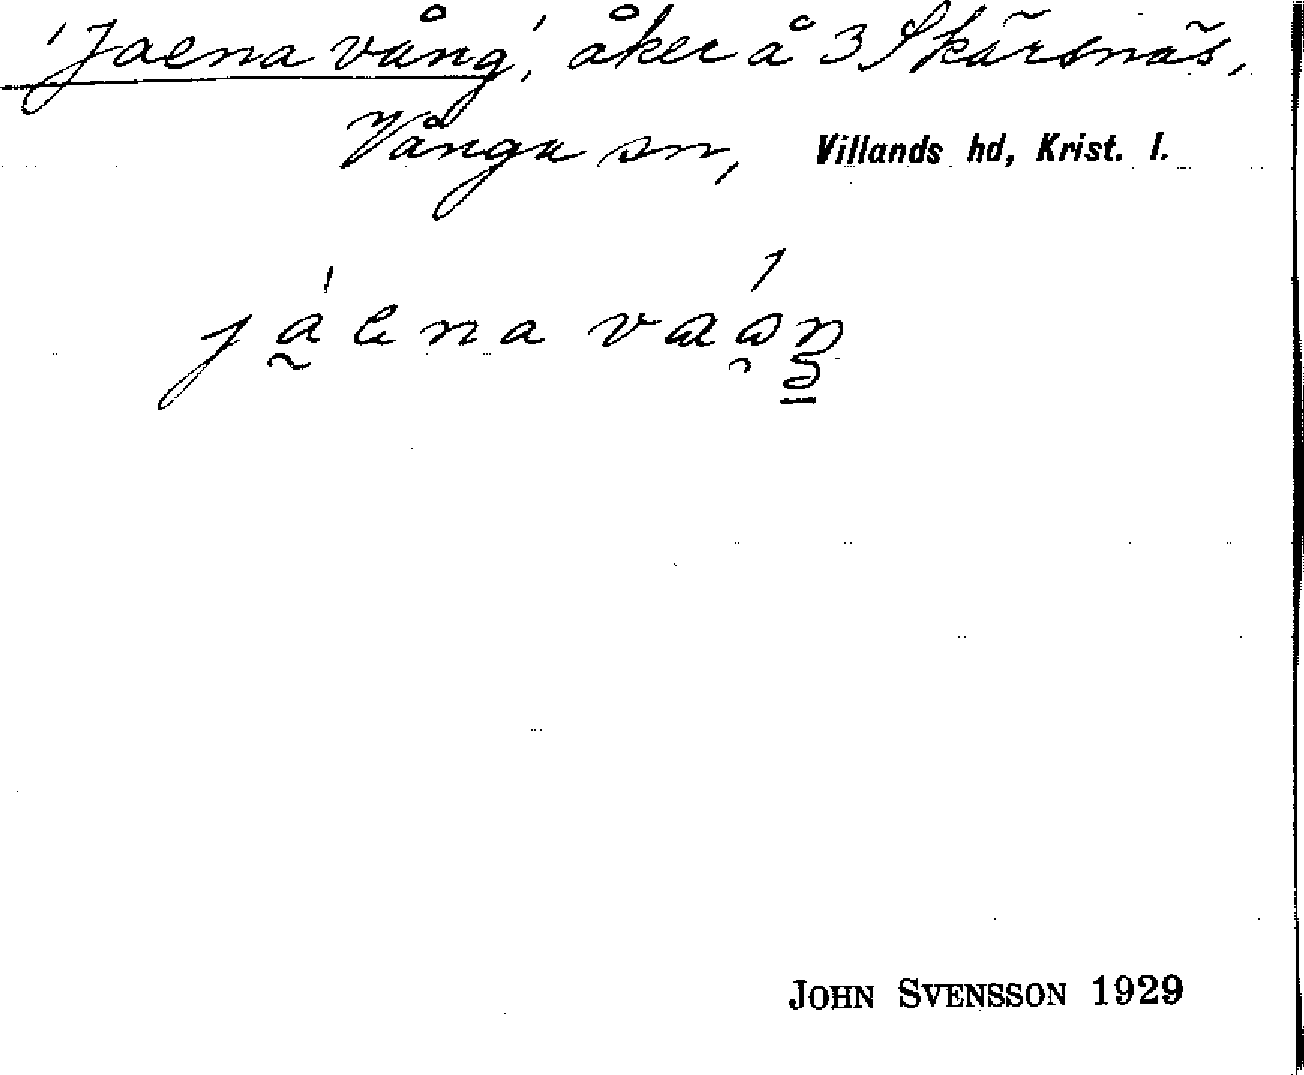 'Jaena vång', åker å 3 Skärsnäs,
Vånga sn, Villands hd, Krist. l.
JOHN SVENSSON 1929